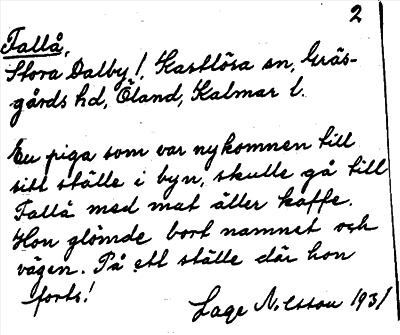 2
Fallå,
Stora Dalby!, Kastlösa sn, Gräs-
gårds hd, Öland, Kalmar l.
En piga som var nykommen till
sitt ställe i byn, skulle gå till
Fallå med mat äller kaffe.
Hon glömde bort namnet och
vägen. På ett ställe där hon
forts!
Lage Nilsson 1931